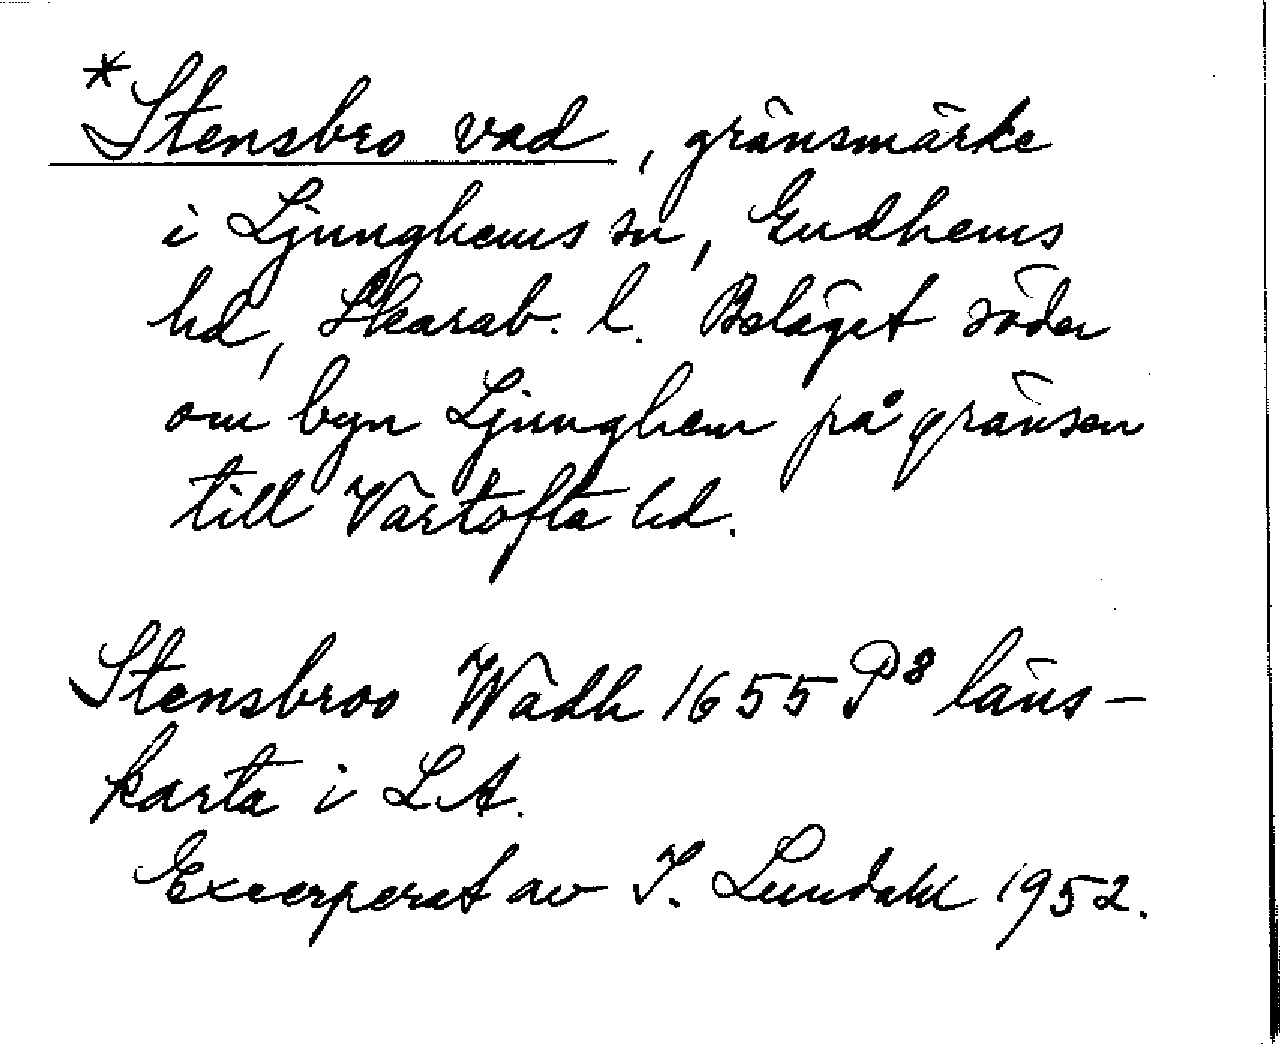 *Stensbro vad, gränsmärke
i Ljunghems sn, Gudhems
hd, Skarab. l. Beläget söder
om byn Ljunghem på gränsen
till Vartofta hd.
Stensbroo Wadh 1655 P⁸ läns-
karta i LA.
Excerperat av I. Lundahl 1952.